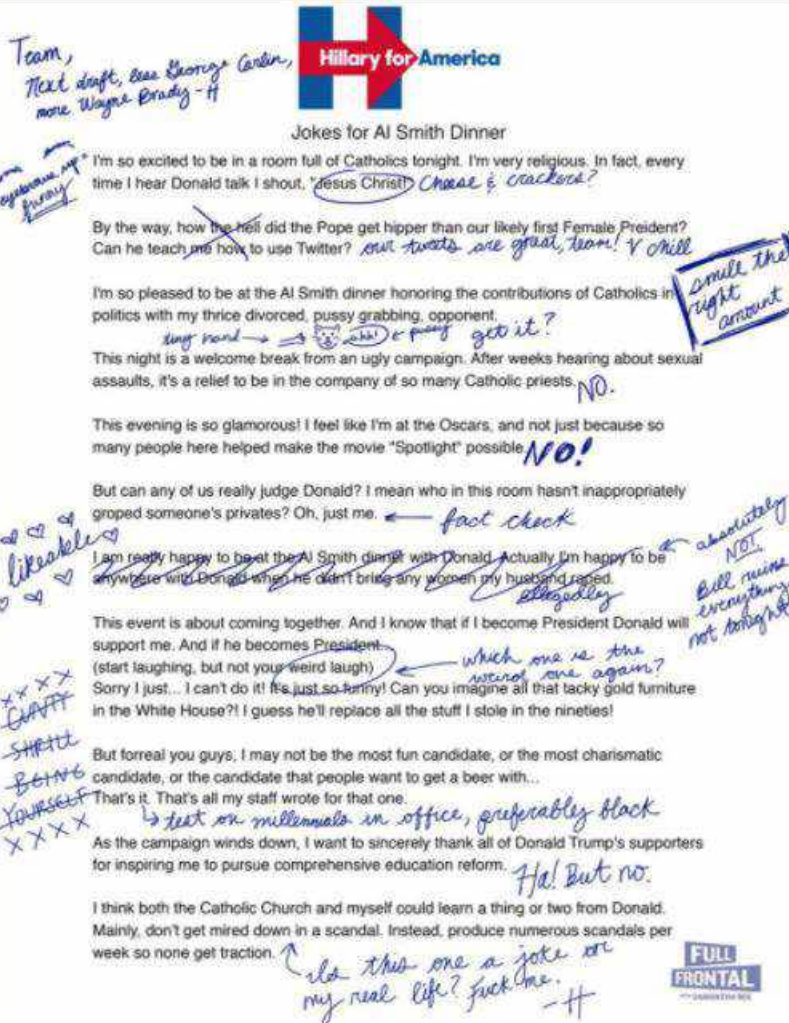 Team,
Next draft, less George Carlin,
more Wayne Brady - H
Hillary for America
Jokes for Al Smith Dinner
eyebrows up
funny
I'm so excited to be in a room full of Catholics tonight. I'm very religious. In fact, every
time I hear Donald talk I shout, "Jesus Christ!" Cheese & crackers?
By the way, how the hell did the Pope get hipper than our likely first Female Preident?
Can he teach me how to use Twitter? our tweets are great, team! V chill
smile the
right
amount
I'm so pleased to be at the Al Smith dinner honoring the contributions of Catholics in
politics with my thrice divorced, pussy grabbing, opponent.
tiny hand → ahh! ← pussy get it?
This night is a welcome break from an ugly campaign. After weeks hearing about sexual
assaults, it's a relief to be in the company of so many Catholic priests. NO.
This evening is so glamorous! I feel like I'm at the Oscars, and not just because so
many people here helped make the movie "Spotlight" possible NO!
But can any of us really judge Donald? I mean who in this room hasn't inappropriately
groped someone's privates? Oh, just me. ← fact check
likeable
I am really happy to be at the Al Smith dinner with Donald. Actually I'm happy to be
anywhere with Donald when he didn't bring any women my husband raped.
allegedly
absolutely
NOT
Bill ruins
everything
not tonight
This event is about coming together. And I know that if I become President Donald will
support me. And if he becomes President...
(start laughing, but not your weird laugh) ← which one is the
weird one again?
Sorry I just... I can't do it! It's just so funny! Can you imagine all that tacky gold furniture
in the White House?! I guess he'll replace all the stuff I stole in the nineties!
xxxx
CUNTY
SHRILL
BEING
YOURSELF
xxxx
But forreal you guys, I may not be the most fun candidate, or the most charismatic
candidate, or the candidate that people want to get a beer with...
That's it. That's all my staff wrote for that one.
↳ test on millennials in office, preferably black
As the campaign winds down, I want to sincerely thank all of Donald Trump's supporters
for inspiring me to pursue comprehensive education reform. Ha! But no.
I think both the Catholic Church and myself could learn a thing or two from Donald.
Mainly, don't get mired down in a scandal. Instead, produce numerous scandals per
week so none get traction.
Is this one a joke or
my real life? Fuck me.
- H
FULL
FRONTAL
WITH SAMANTHA BEE